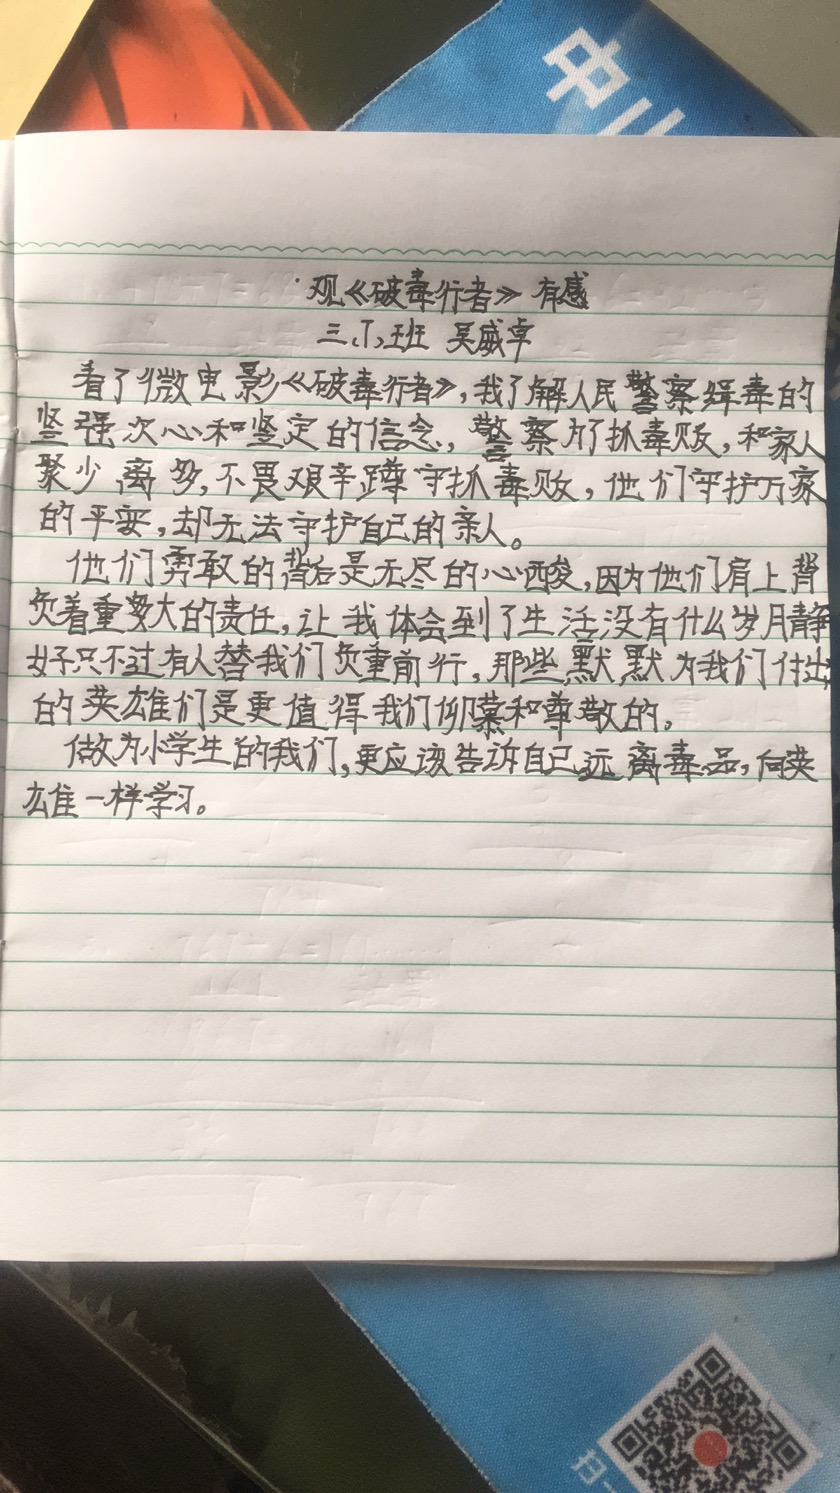 中山
观《破毒行者》有感
三.丁.班 吴威卓
看了微电影《破毒行者》,我了解人民警察缉毒的
坚强决心和坚定的信念,警察为了抓毒贩,和家人
聚少离多,不畏艰辛蹲守抓毒贩,他们守护万家
的平安,却无法守护自己的亲人。
他们勇敢的背后是无尽的心酸,因为他们肩上背
负着重大的责任,让我体会到了生活没有什么岁月静
好只不过有人替我们负重前行,那些默默为我们付出
的英雄们是更值得我们仰慕和尊敬的。
做为小学生的我们,更应该告诉自己远离毒品,向英
雄一样学习。
扫一